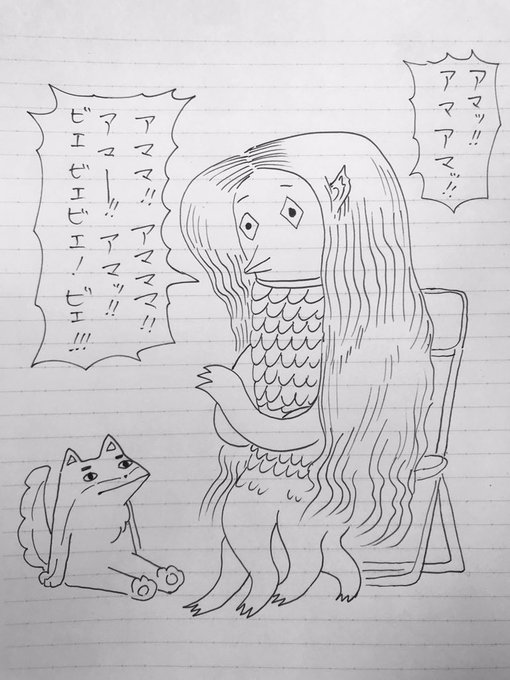 アマッ!!
アマアマッ!!
アママ!! アママママ!!
アマー!! アマッ!!
ビエビエビエ! ビエ!!!